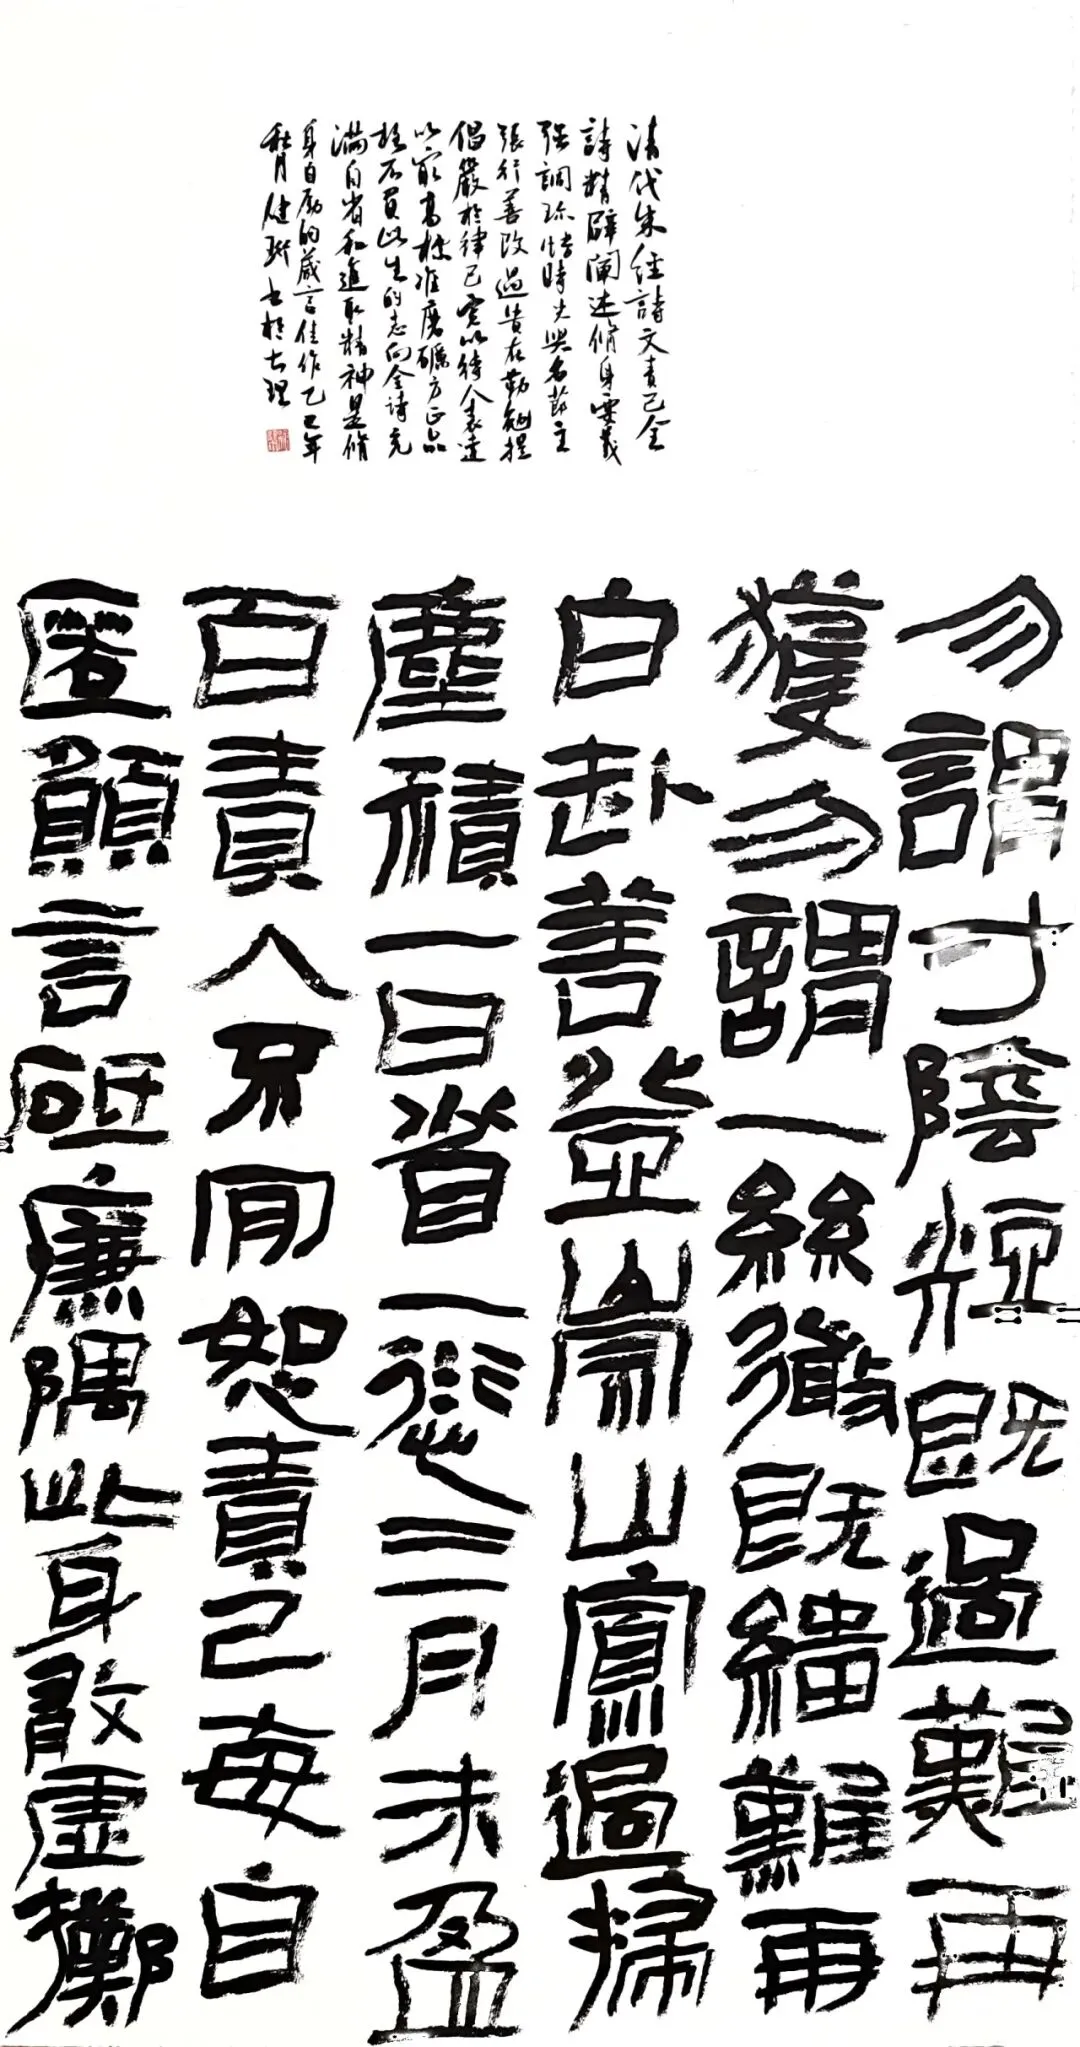 清代朱經詩文責己全
詩精闢闡述脩身要義
強調珍惜時光與名節主
張行善改過貴在勤勉提
倡嚴於律己寬以待人表達
以最高標准磨礪方正品
格不負此生的志向全詩充
滿自省和進取精神是脩
身自勵的箴言佳作乙巳年
秋月健書於大理
勿謂寸陰短既過難再
獲勿謂一絲微既緇難再
白赴善登崇山寡過掃
塵積一日省一愆三月未盈
百責人不肎恕責己每自
匿願言砥廉隅此身敢虛擲